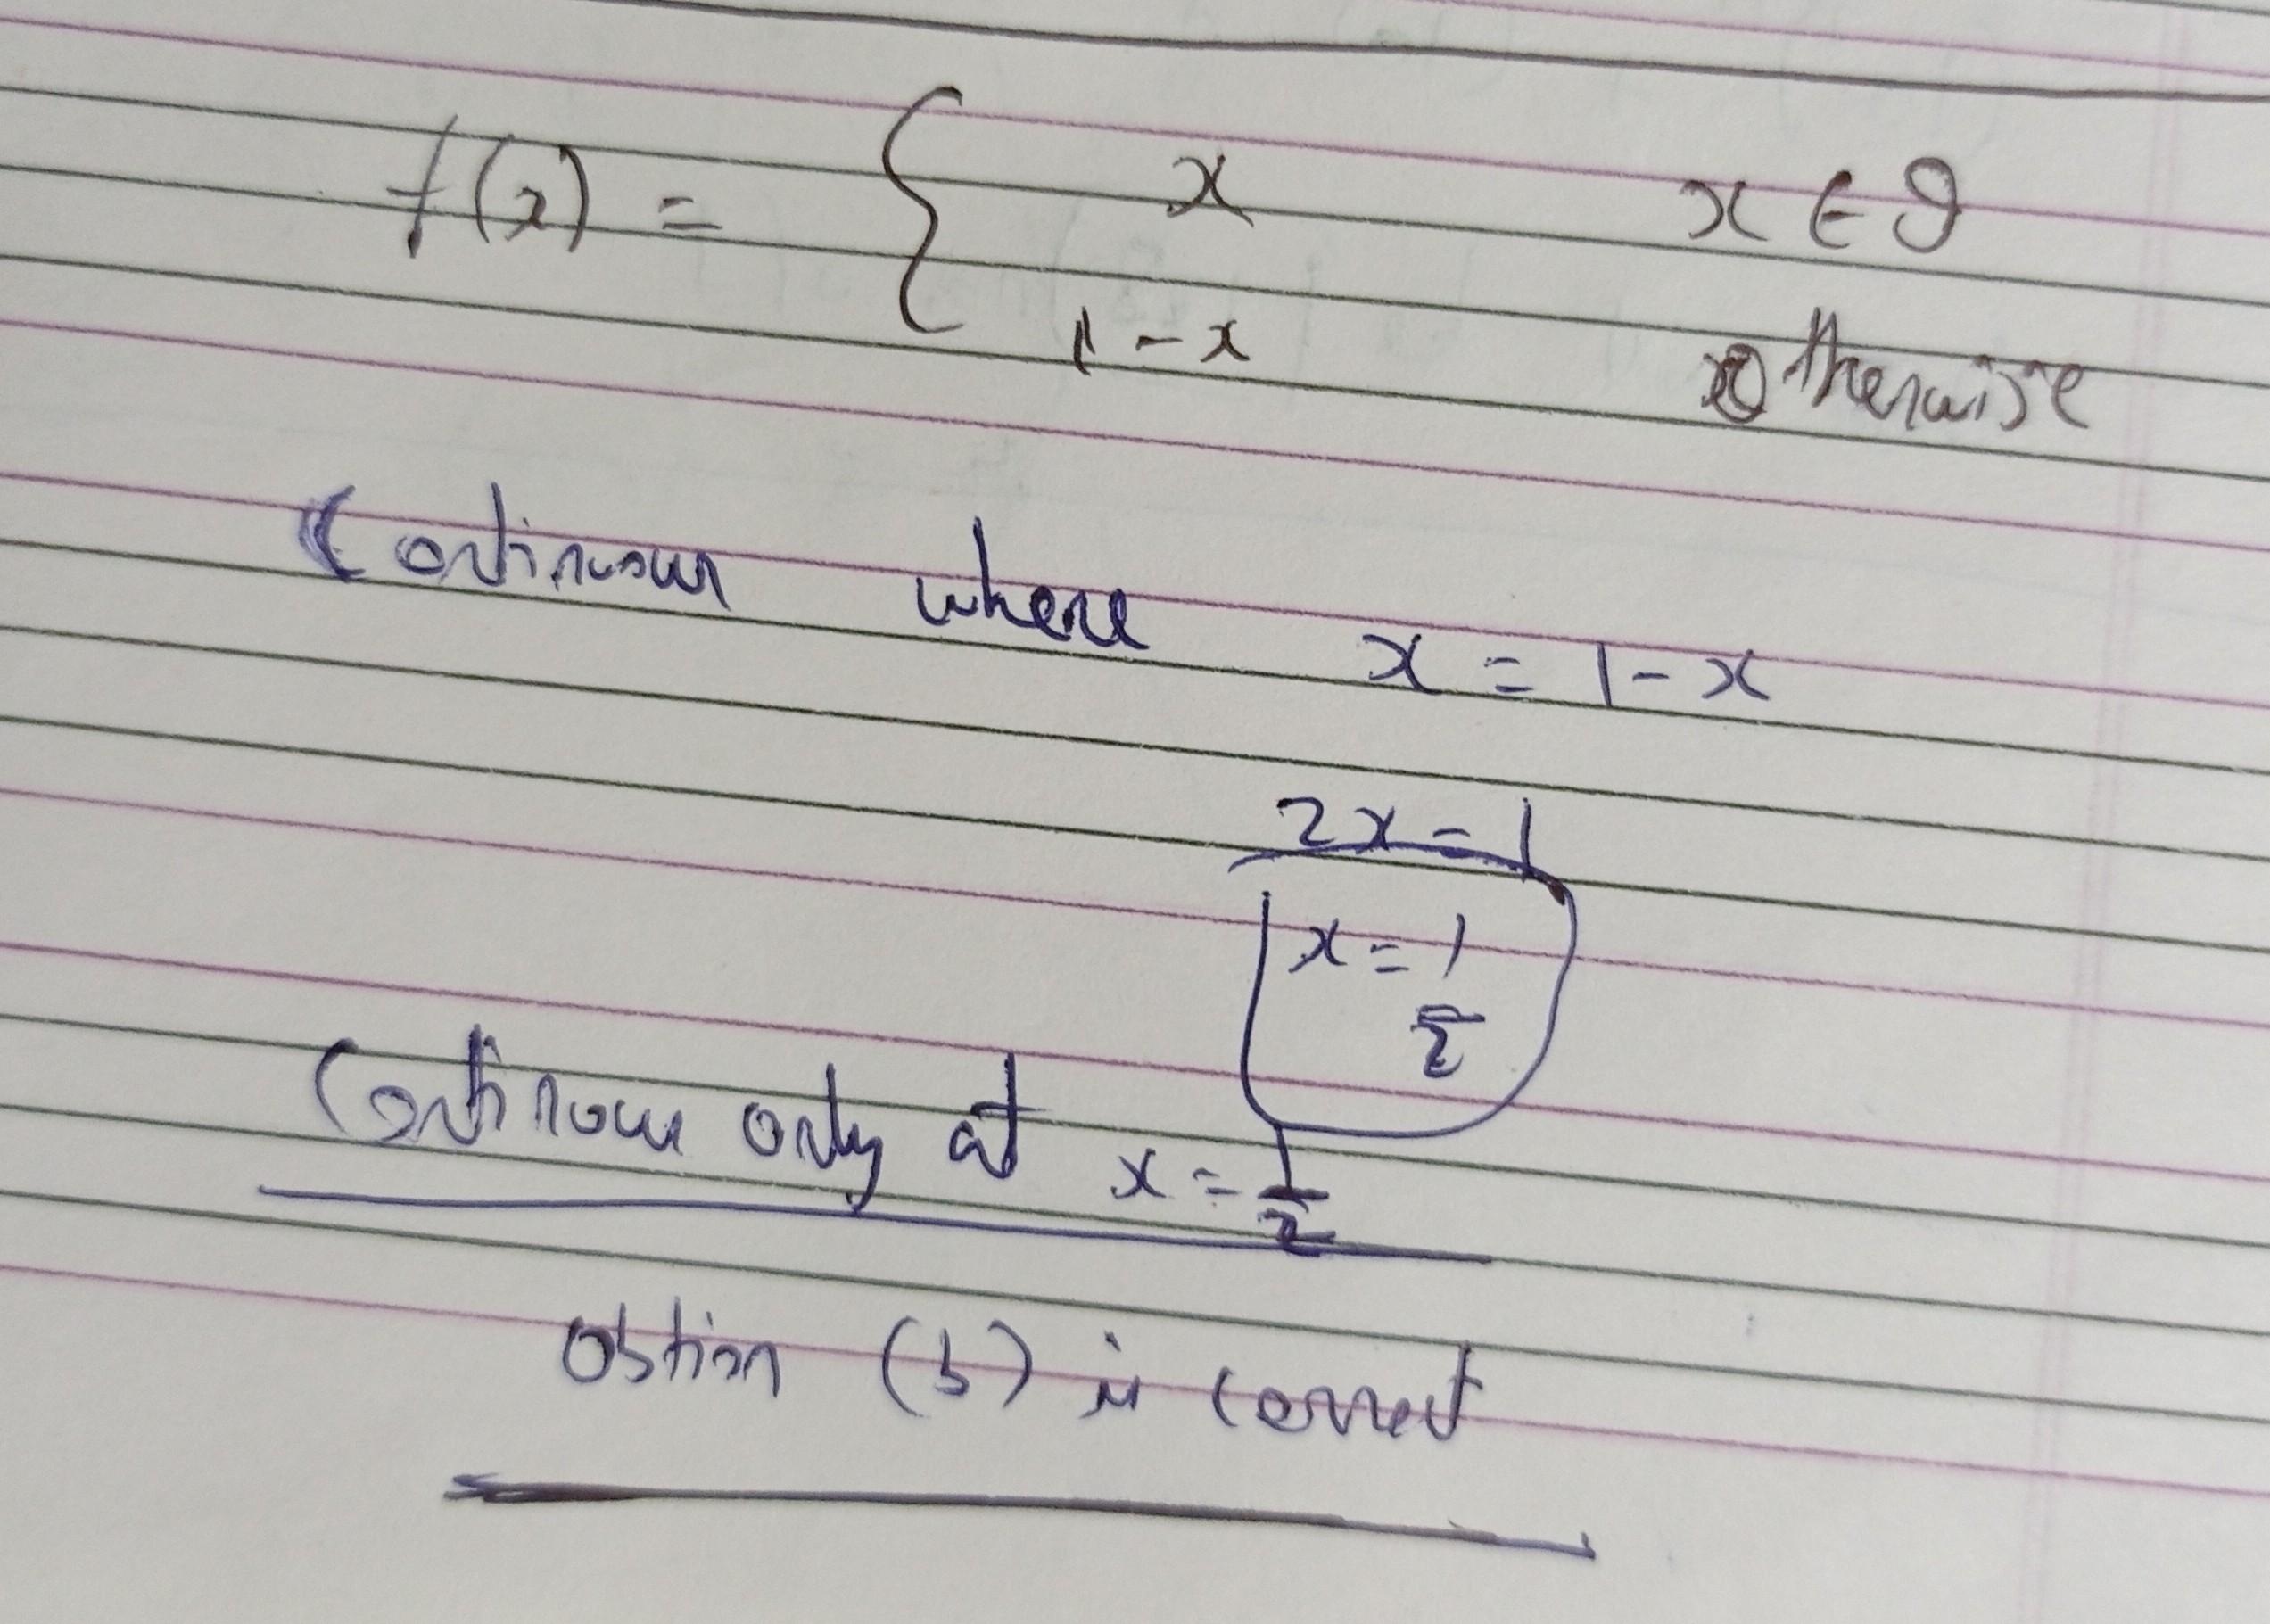 f(x) = { x x ∈ Q
1-x otherwise
Continuous where x = 1-x
2x = 1
x = 1/2
Continuous only at x = 1/2
Option (b) is correct